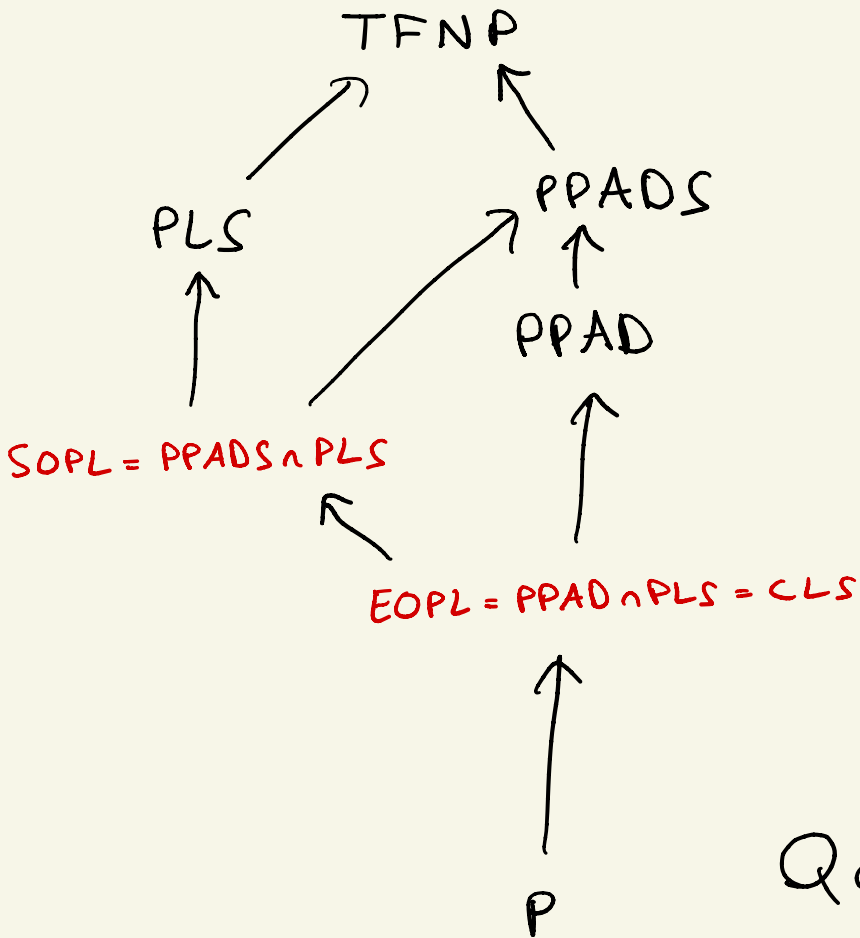 TFNP
PLS
PPADS
PPAD
SOPL = PPADS ∩ PLS
EOPL = PPAD ∩ PLS = CLS
P